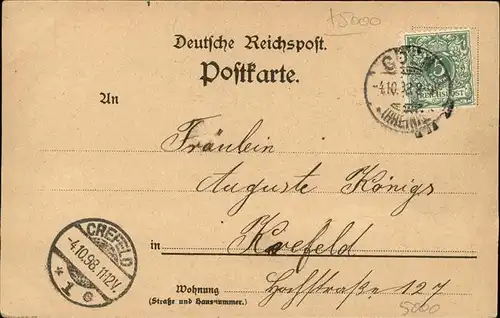 15000
Deutsche Reichspost.
Postkarte.
An
Fräulein
Auguste Königs
in Krefeld
Wohnung Hochstraße 127
(Straße und Hausnummer.)
5000
REICHSPOST
-4.10.98
(RHEIN)
CREFELD
-4.10.98.11-12V.
* 1 c